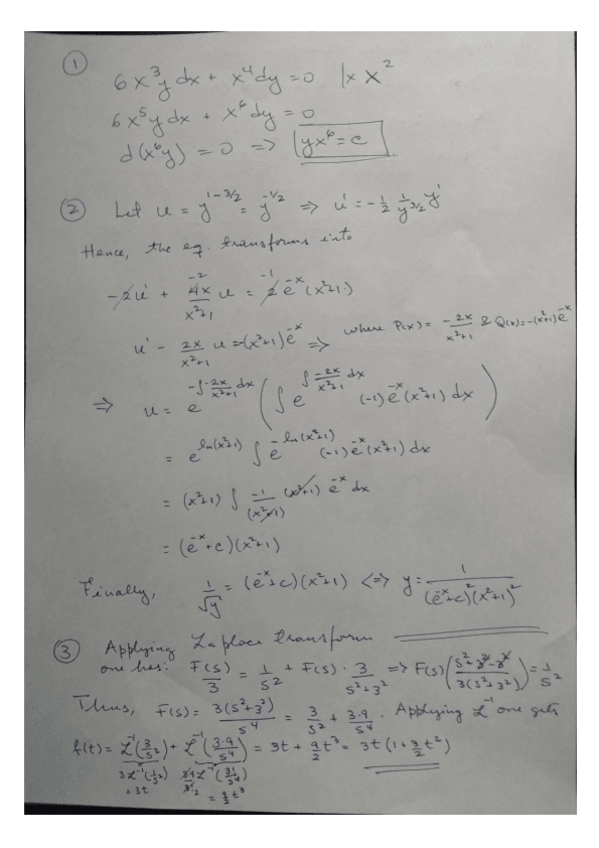 ① 6x³y dx + x⁴dy = 0 |× x²
6x⁵y dx + x⁶dy = 0
d(x⁶y) = 0 => yx⁶ = c
② Let u = y^(1-3/2) = y^(-1/2) => u' = -1/2 1/y^(3/2) y'
Hence, the eq. transforms into
-2u' + 4x/(x²+1) u = 2e^(-x)(x²+1)
u' - 2x/(x²+1) u = -(x²+1)e^(-x) => where P(x) = -2x/(x²+1) & Q(x) = -(x²+1)e^(-x)
=> u = e^(-∫-2x/(x²+1) dx) (∫ e^(∫-2x/(x²+1) dx) (-1)e^(-x)(x²+1) dx)
= e^(ln(x²+1)) ∫ e^(-ln(x²+1)) (-1)e^(-x)(x²+1) dx
= (x²+1) ∫ -1/(x²+1) (x²+1) e^(-x) dx
= (e^(-x)+c)(x²+1)
Finally, 1/√y = (e^(-x)+c)(x²+1) <=> y = 1/((e^(-x)+c)²(x²+1)²)
③ Applying Laplace transform
one has: F(s)/3 = 1/s² + F(s) · 3/(s²+3²) => F(s)((s²+3²-3²)/(3(s²+3²))) = 1/s²
Thus, F(s) = 3(s²+3²)/s⁴ = 3/s² + 3·9/s⁴. Applying L⁻¹ one gets
f(t) = L⁻¹(3/s²) + L⁻¹(3·9/s⁴) = 3t + 9/2 t³ = 3t(1+3/2 t²)
3L⁻¹(1/s²)
= 3t
= 9/2 t³